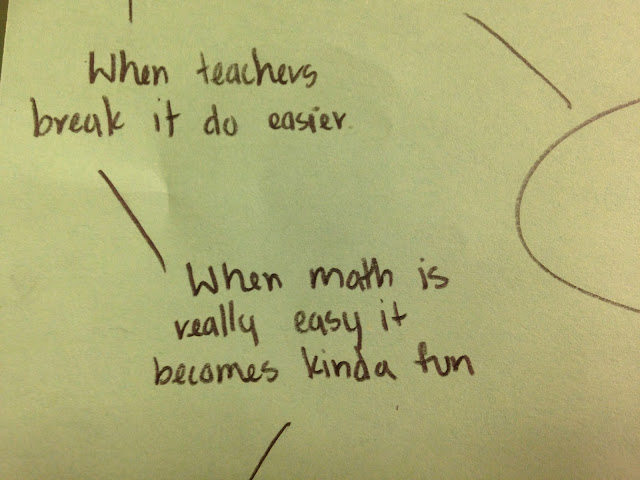 When teachers
break it do easier.
When math is
really easy it
becomes kinda fun